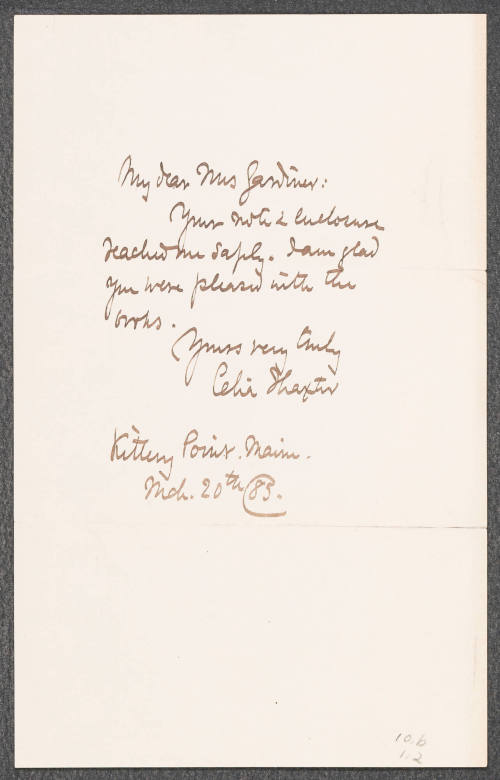 My dear Mrs Gardiner:
Your note & enclosure
reached me safely. I am glad
you were pleased with the
books.
Yours very truly
Celia Thaxter
Kittery Point. Maine.
Mch. 20th 83.
10.b
1.2